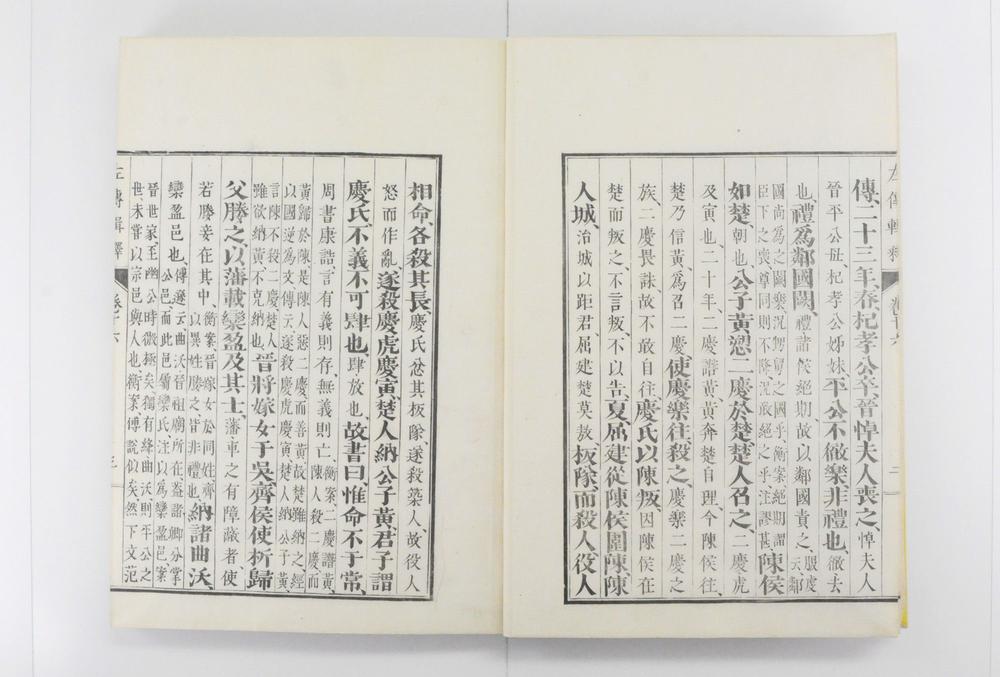 左傳輯釋 卷十六 二
傳、二十三年、春杞孝公卒、晉悼夫人喪之、悼夫人
晉平公母、杞孝公姊妹、平公不徹樂、非禮也、徹去
也、禮爲鄰國闕、禮諸侯絕期故以鄰國責之、服虔云、鄰
國尚爲之闕樂、況甥舅之國乎、衡案絕期謂
臣下之喪、尊同則不降、況敢絕之乎、注謬甚、陳侯
如楚、朝也、公子黃愬二慶於楚、楚人召之、二慶虎
及寅也、二十年、二慶譖黃、黃奔楚自理、今陳侯往、
楚乃信黃爲召二慶、使慶樂往、殺之、慶樂二慶之
族、二慶畏誅故不敢自往、慶氏以陳叛、因陳侯在
楚而叛之、不言叛、不以告、夏屈建從陳侯圍陳、陳
人城、治城以距君、屈建楚莫敖、板隊、而殺人、役人
相命、各殺其長、慶氏忿其板隊、遂殺築人、故役人
怒而作亂、遂殺慶虎慶寅、楚人納公子黃、君子謂
慶氏不義不可肆也、肆放也、故書曰、惟命不于常、
周書康誥言有義則存無義則亡、衡案、二慶譖黃、
陳人殺二慶、而
黃歸於陳、是陳人惡二慶而善黃、故楚雖納之、經
以國逆爲文、傳云遂殺慶虎慶寅、楚人納公子黃、
言陳不殺二慶、楚人
雖欲納黃、不克納也、晉將嫁女于吳、齊侯使析歸
父媵之、以藩載欒盈及其士、藩車之有障蔽者、使
若媵妾在其中、衡案、晉嫁女於同姓、齊
以異姓媵之、皆非禮也、納諸曲沃、
欒盈邑也、傅遜云、曲沃晉祖廟所在、蓋諸卿分掌
公邑、而此邑屬欒氏、注以爲欒盈邑、案
晉世家、至幽公時微極矣、獨有絳曲沃、則平公之
世、未嘗以宗邑與人也、衡案、傅說似矣、然下文范
左傳輯釋 卷十六 三